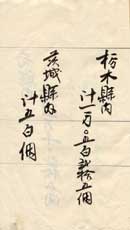 栃木縣内
計一万〇五百貳拾五個
茨城縣内
計五百個